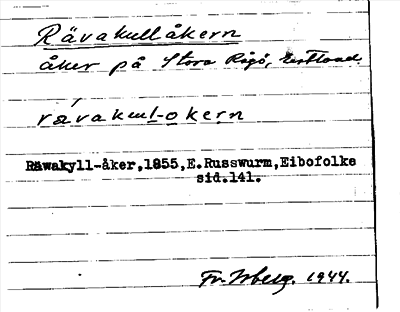 Rävakullåkern
åker på Stora Rågö, Estland
Räwakyll-åker,1855,E.Russwurm,Eibofolke
sid.141.
1944.